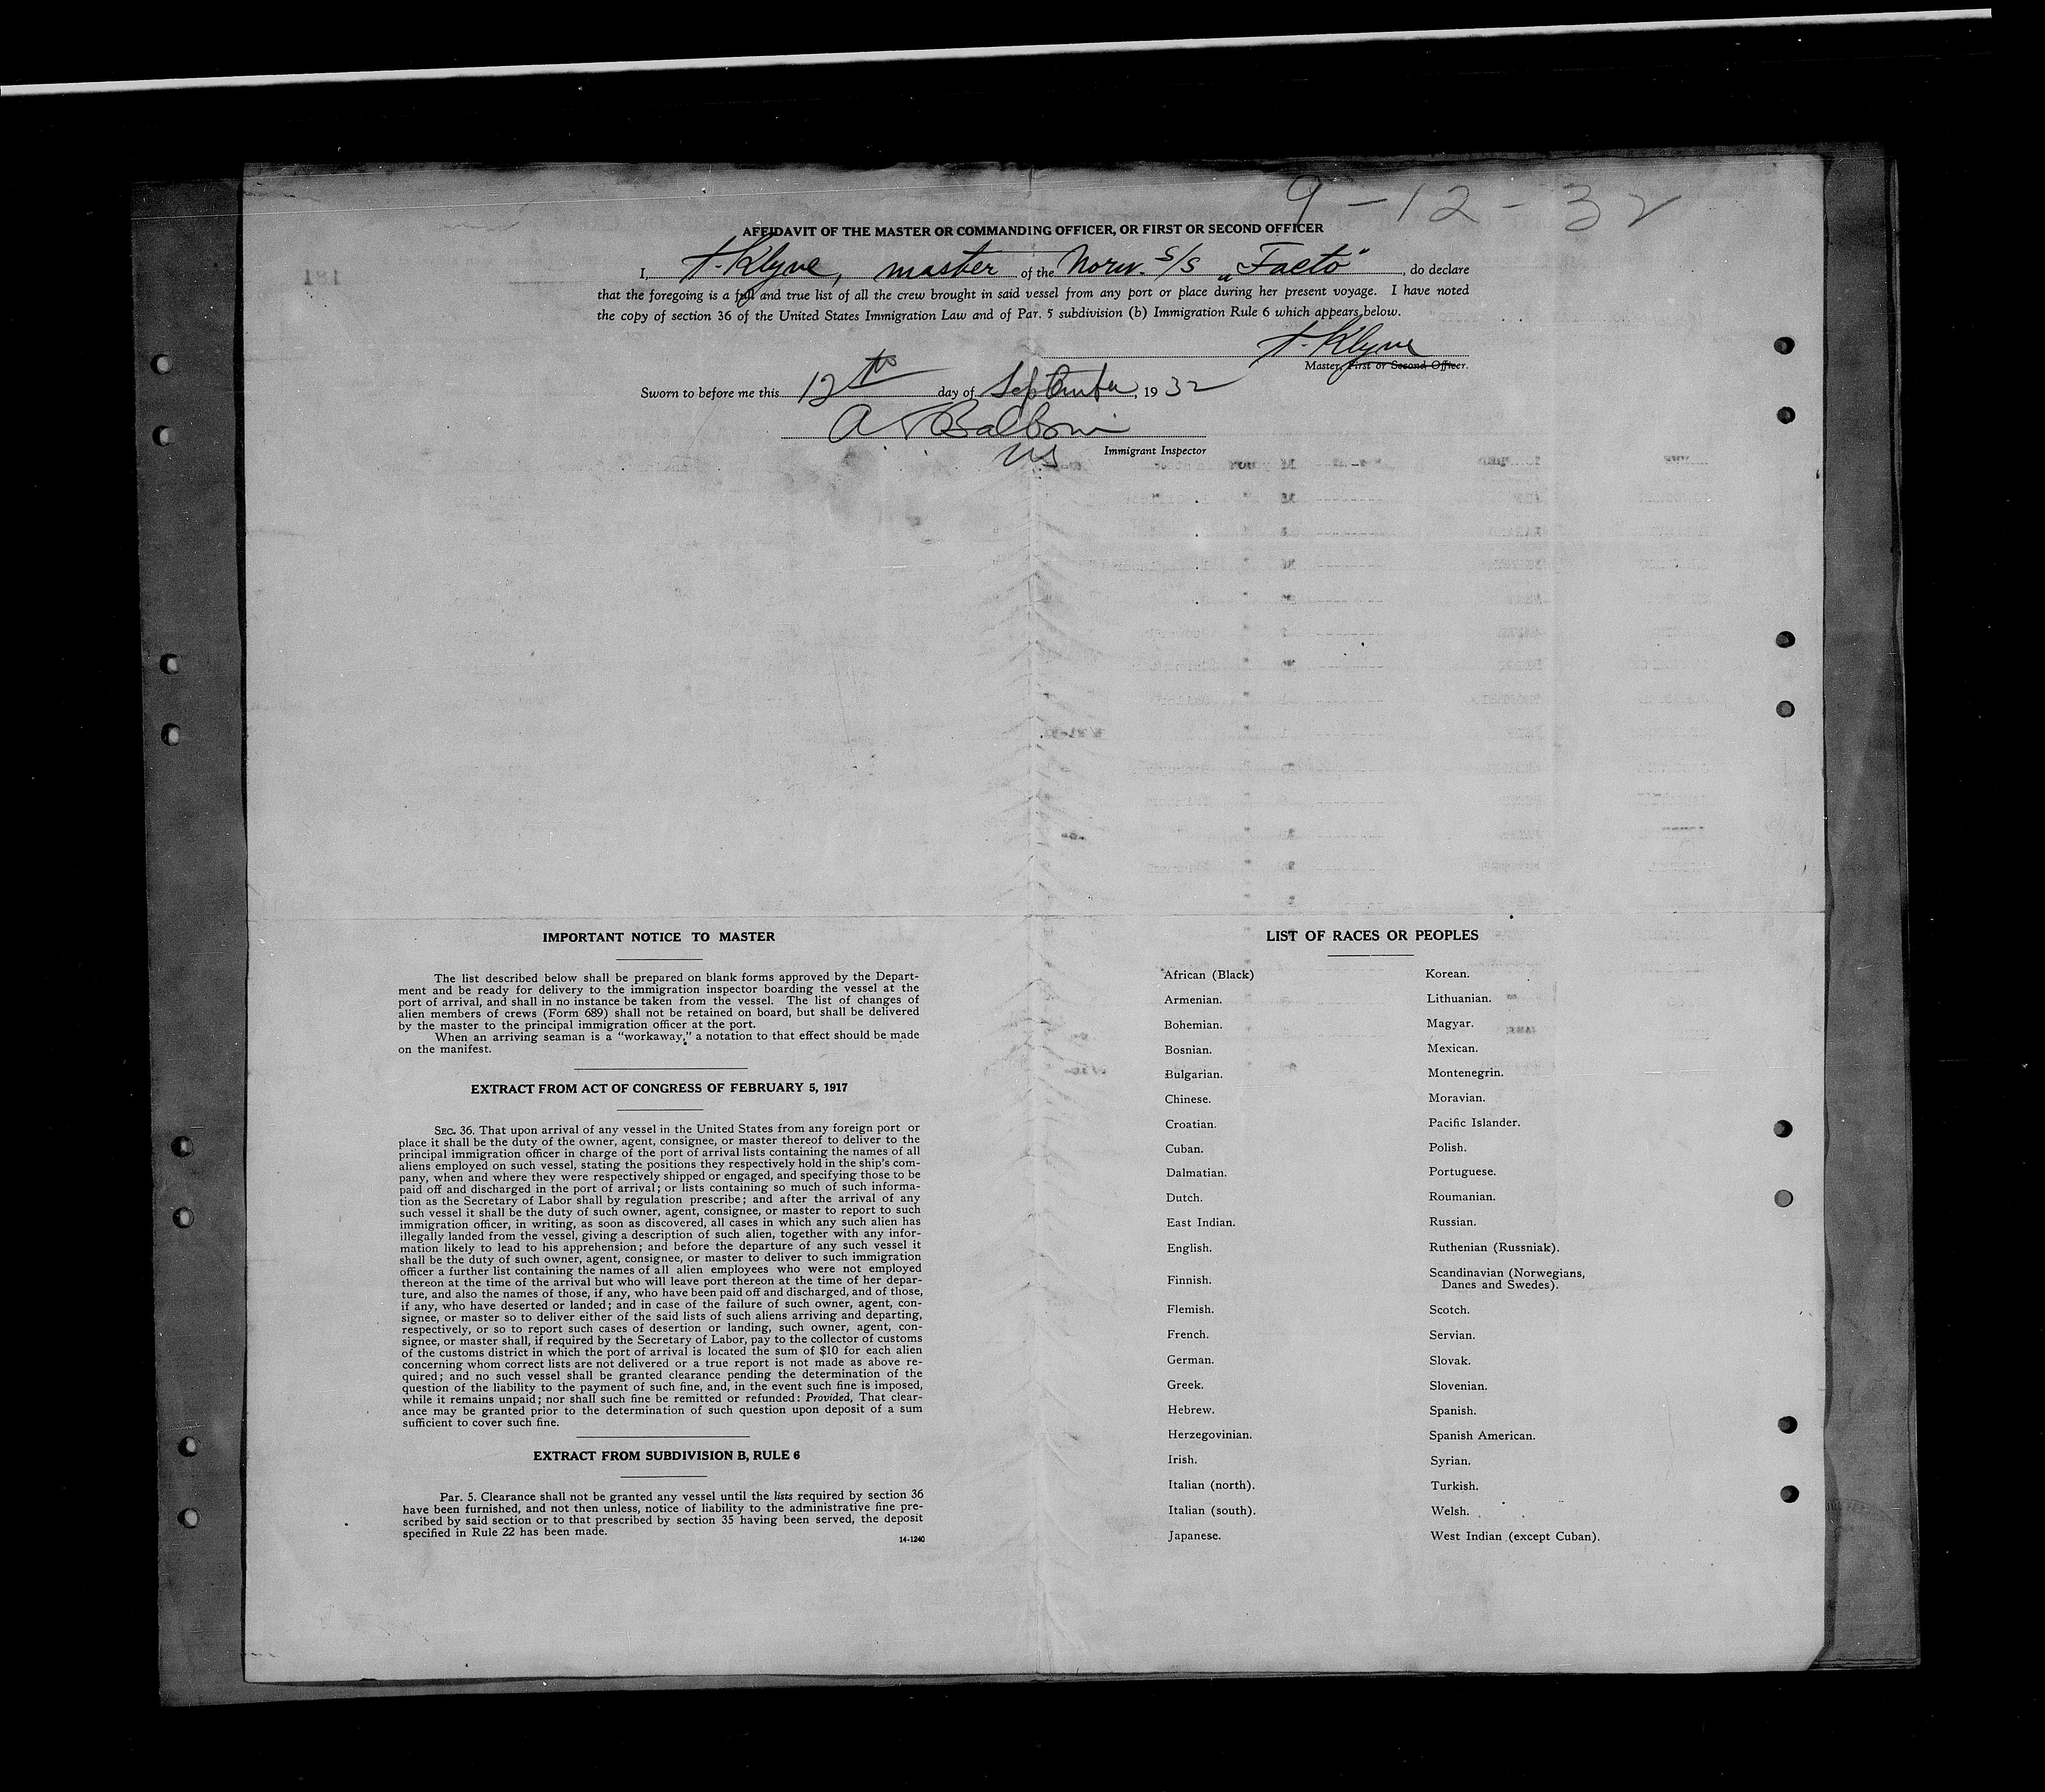 9-12-32
AFFIDAVIT OF THE MASTER OR COMMANDING OFFICER, OR FIRST OR SECOND OFFICER
I, T. Klyve, master of the Norw. S/S „Facto", do declare
that the foregoing is a full and true list of all the crew brought in said vessel from any port or place during her present voyage. I have noted
the copy of section 36 of the United States Immigration Law and of Par. 5 subdivision (b) Immigration Rule 6 which appears below.
T. Klyve
Master, First or Second Officer.
Sworn to before me this 12th day of September, 1932
Immigrant Inspector
IMPORTANT NOTICE TO MASTER
The list described below shall be prepared on blank forms approved by the Depart-
ment and be ready for delivery to the immigration inspector boarding the vessel at the
port of arrival, and shall in no instance be taken from the vessel. The list of changes of
alien members of crews (Form 689) shall not be retained on board, but shall be delivered
by the master to the principal immigration officer at the port.
When an arriving seaman is a "workaway," a notation to that effect should be made
on the manifest.
EXTRACT FROM ACT OF CONGRESS OF FEBRUARY 5, 1917
SEC. 36. That upon arrival of any vessel in the United States from any foreign port or
place it shall be the duty of the owner, agent, consignee, or master thereof to deliver to the
principal immigration officer in charge of the port of arrival lists containing the names of all
aliens employed on such vessel, stating the positions they respectively hold in the ship's com-
pany, when and where they were respectively shipped or engaged, and specifying those to be
paid off and discharged in the port of arrival; or lists containing so much of such informa-
tion as the Secretary of Labor shall by regulation prescribe; and after the arrival of any
such vessel it shall be the duty of such owner, agent, consignee, or master to report to such
immigration officer, in writing, as soon as discovered, all cases in which any such alien has
illegally landed from the vessel, giving a description of such alien, together with any infor-
mation likely to lead to his apprehension; and before the departure of any such vessel it
shall be the duty of such owner, agent, consignee, or master to deliver to such immigration
officer a further list containing the names of all alien employees who were not employed
thereon at the time of the arrival but who will leave port thereon at the time of her depar-
ture, and also the names of those, if any, who have been paid off and discharged, and of those,
if any, who have deserted or landed; and in case of the failure of such owner, agent, con-
signee, or master so to deliver either of the said lists of such aliens arriving and departing,
respectively, or so to report such cases of desertion or landing, such owner, agent, con-
signee, or master shall, if required by the Secretary of Labor, pay to the collector of customs
of the customs district in which the port of arrival is located the sum of $10 for each alien
concerning whom correct lists are not delivered or a true report is not made as above re-
quired; and no such vessel shall be granted clearance pending the determination of the
question of the liability to the payment of such fine, and, in the event such fine is imposed,
while it remains unpaid; nor shall such fine be remitted or refunded: Provided, That clear-
ance may be granted prior to the determination of such question upon deposit of a sum
sufficient to cover such fine.
EXTRACT FROM SUBDIVISION B, RULE 6
Par. 5. Clearance shall not be granted any vessel until the lists required by section 36
have been furnished, and not then unless, notice of liability to the administrative fine pre-
scribed by said section or to that prescribed by section 35 having been served, the deposit
specified in Rule 22 has been made.
14-1240
LIST OF RACES OR PEOPLES
African (Black)
Armenian.
Bohemian.
Bosnian.
Bulgarian.
Chinese.
Croatian.
Cuban.
Dalmatian.
Dutch.
East Indian.
English.
Finnish.
Flemish.
French.
German.
Greek.
Hebrew.
Herzegovinian.
Irish.
Italian (north).
Italian (south).
Japanese.
Korean.
Lithuanian.
Magyar.
Mexican.
Montenegrin.
Moravian.
Pacific Islander.
Polish.
Portuguese.
Roumanian.
Russian.
Ruthenian (Russniak).
Scandinavian (Norwegians,
Danes and Swedes).
Scotch.
Servian.
Slovak.
Slovenian.
Spanish.
Spanish American.
Syrian.
Turkish.
Welsh.
West Indian (except Cuban).